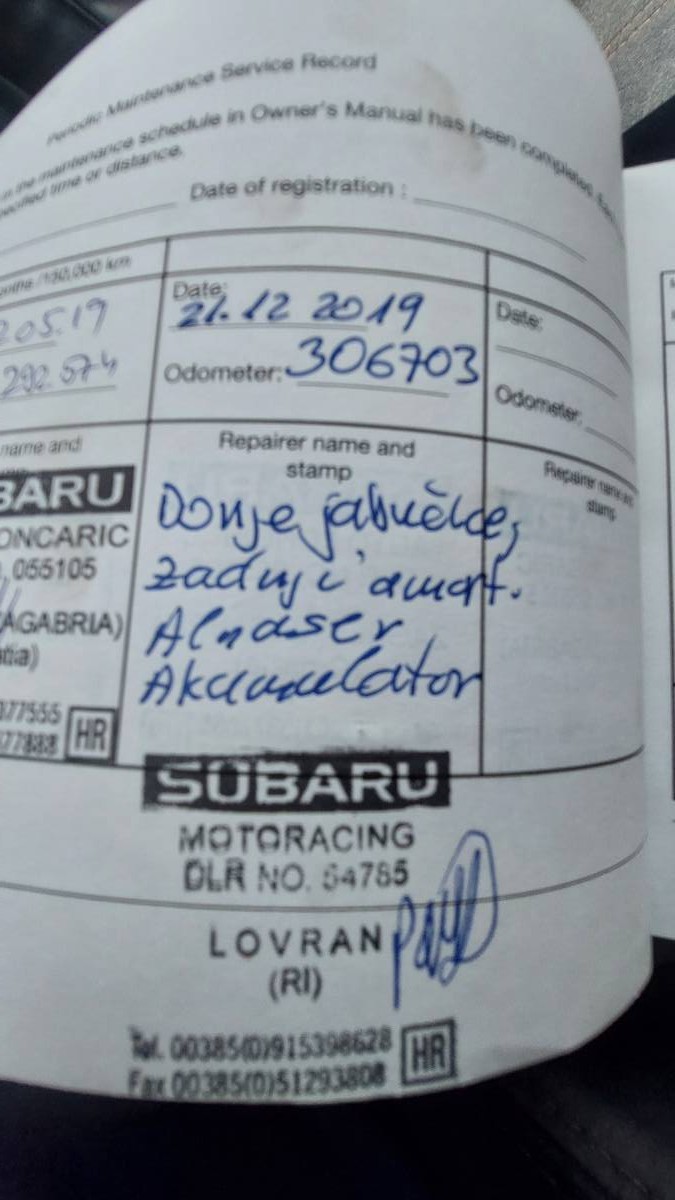 Periodic Maintenance Service Record
the maintenance schedule in Owner's Manual has been completed
specified time or distance.
Date of registration :
/150,000 km
Date:
21.12 2019
Date:
205.19
Odometer: 306703
Odometer:
292.074
name and
Repairer name and
stamp
Repairer name and
stamp
BARU
ONCARIC
055105
AGABRIA)
tia)
077555
77888
HR
Donje jabučice,
zadnji amort.
Alnaser
Akumulator
SUBARU
MOTORACING
DLR NO. 54785
LOVRAN
(RI)
Tel. 00385(0)915398628
Fax 00385(0)51293808
HR